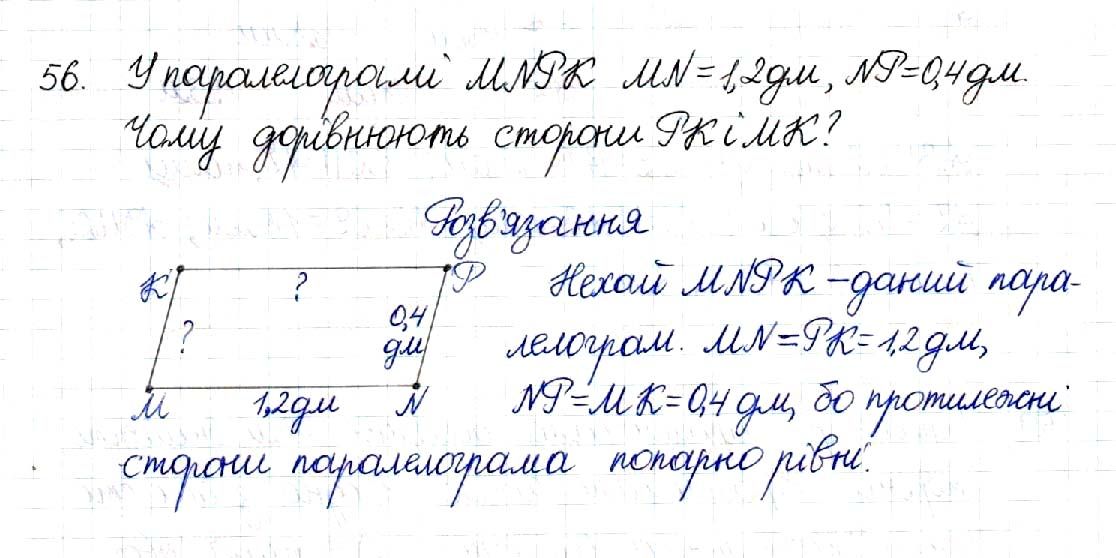 56. У паралелограмі MNPK MN=1,2дм, NP=0,4дм.
Чому дорівнюють сторони PK і MK?
Розв'язання
K ? P
? 0,4
дм
M 1,2дм N
Нехай MNPK – даний пара-
лелограм. MN=PK=1,2дм,
NP=MK=0,4дм, бо протилежні
сторони паралелограма попарно рівні.